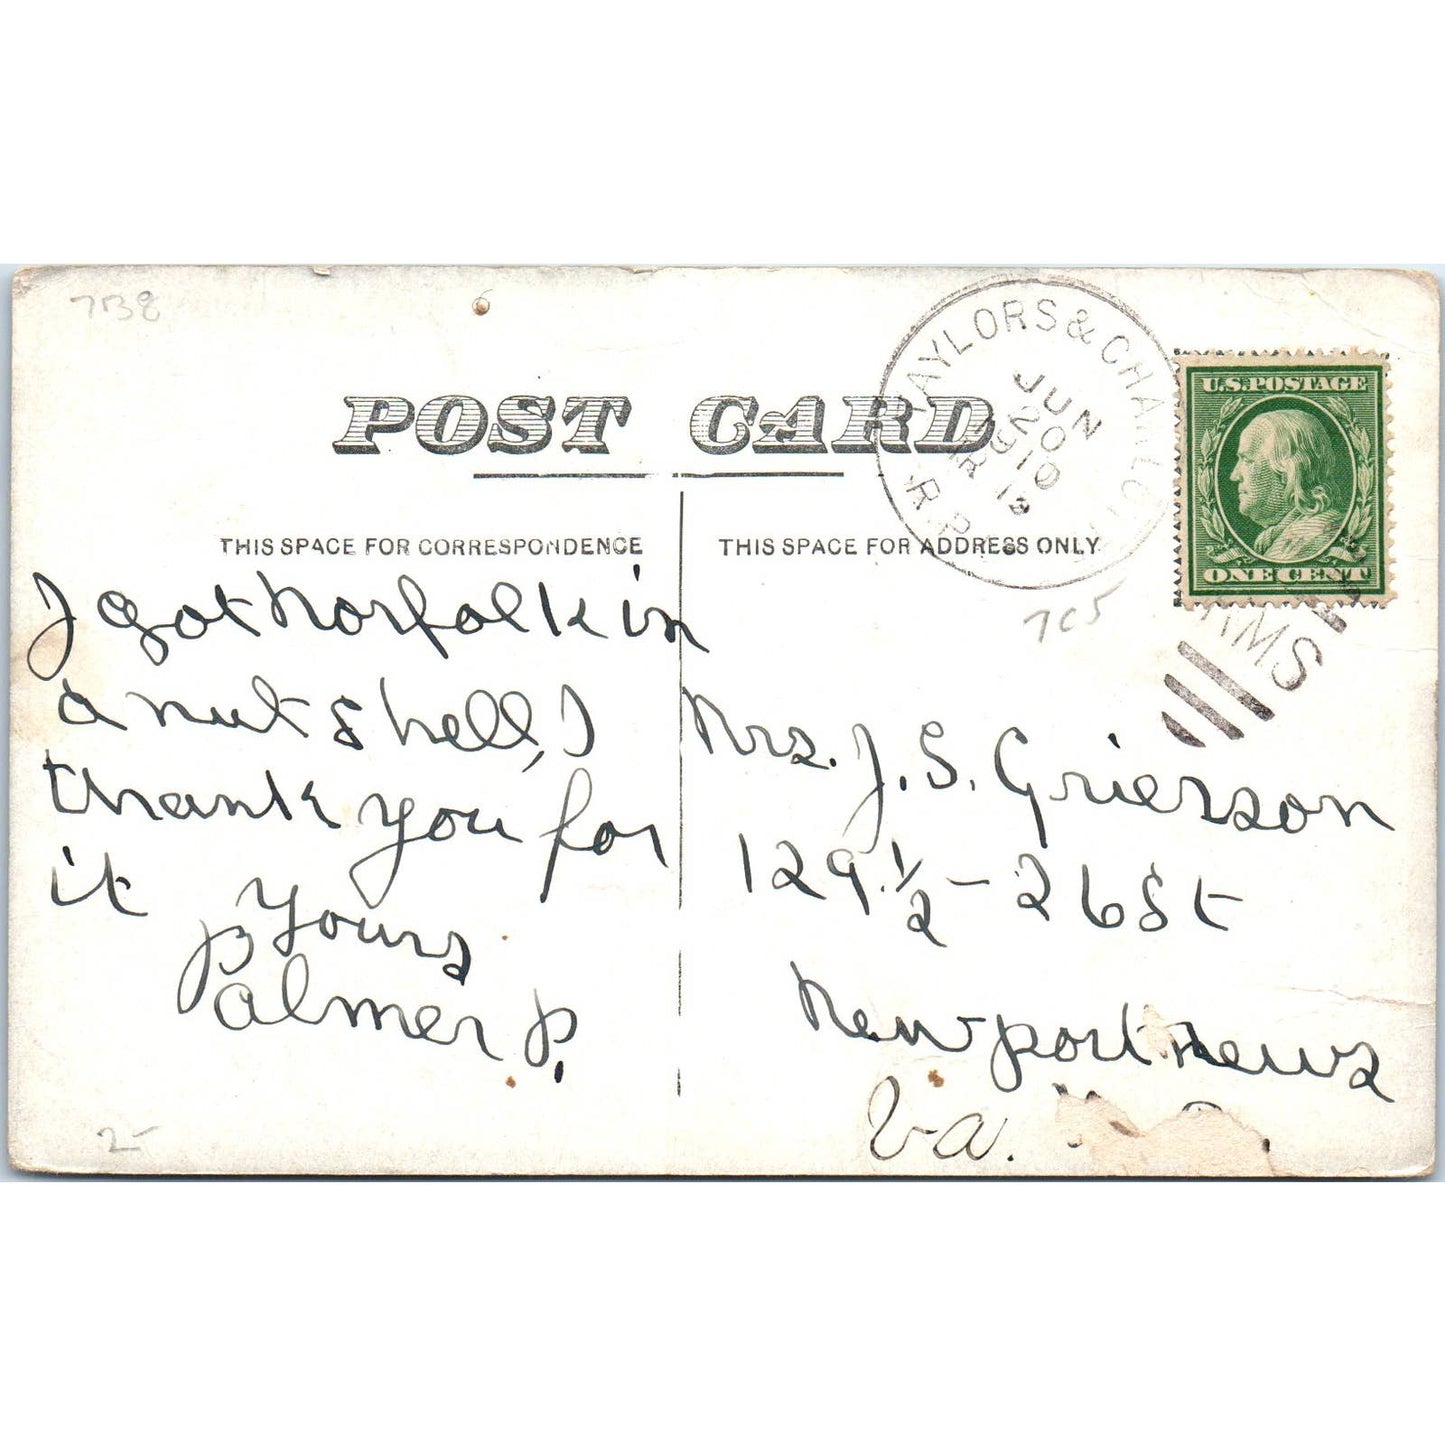 7138
POST CARD
TAYLORS & CHARLOTTE
JUN
20
1910
R.P.O.
U.S.POSTAGE
ONE CENT
RMS
THIS SPACE FOR CORRESPONDENCE
I got norfolk in
a nut shell, I
thank you for
it
Yours
Palmer P.
2-
THIS SPACE FOR ADDRESS ONLY
7C5
Mrs. J. S. Grierson
129 1/2 - 26 St
Newport news
Va.